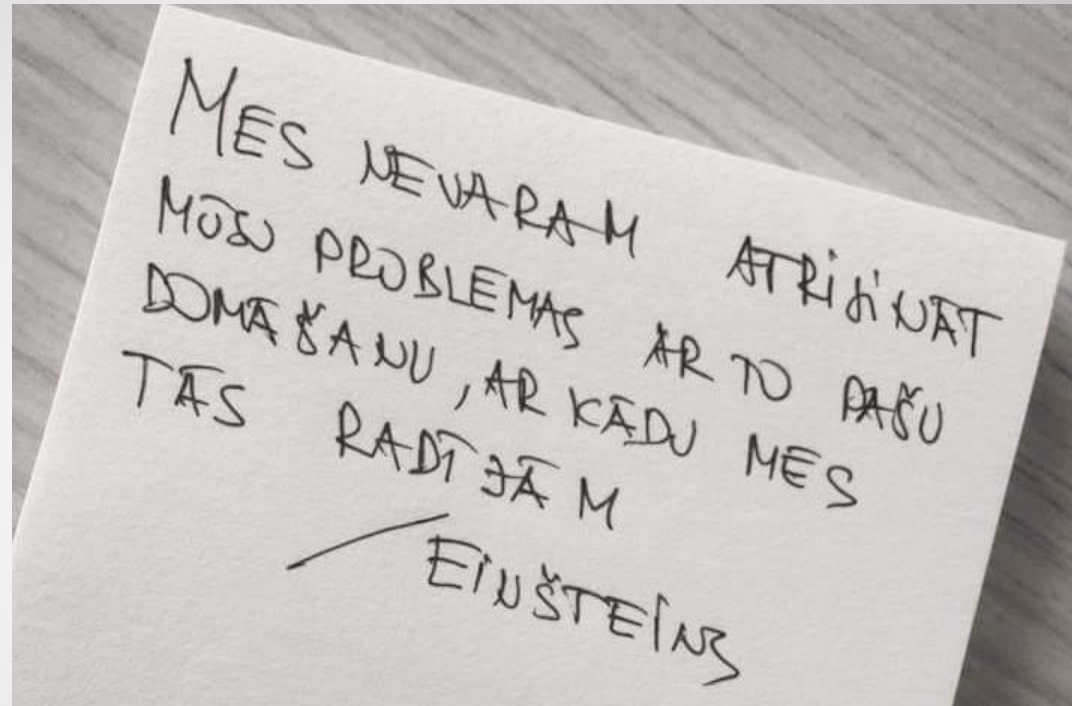 MĒS NEVARAM ATRISINĀT
MŪSU PROBLĒMAS AR TO PAŠU
DOMĀŠANU, AR KĀDU MĒS
TĀS RADĪJĀM
EINŠTEINS